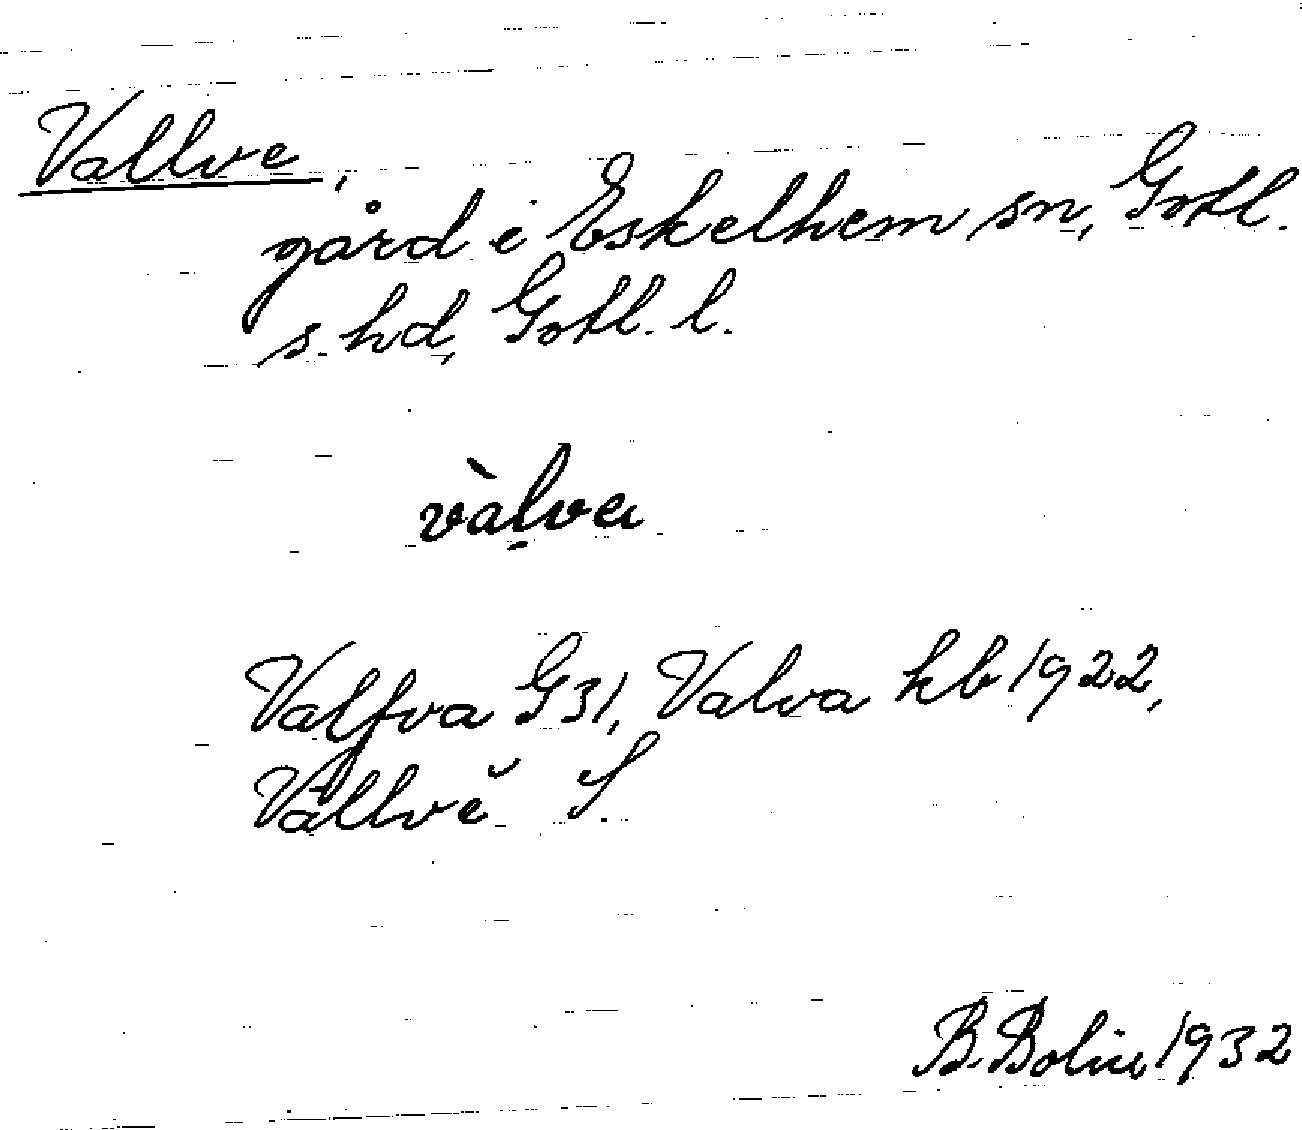 Vallve,
gård i Eskelhem sn, Gotl.
s. hd, Gotl. l.
vàḷva
Valfva G 31, Valva kb 1922,
Vallvĕ S.
B. Bolin 1932